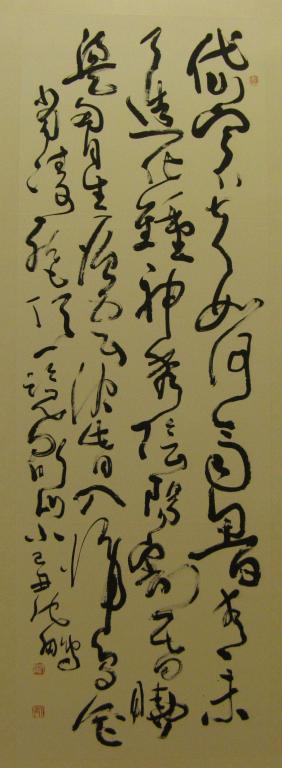 岱宗夫如何齊魯青未
了造化鍾神秀陰陽割昏曉
盪胸生層雲決眥入歸鳥會
當凌絕頂一覽眾山小己丑沈鵬